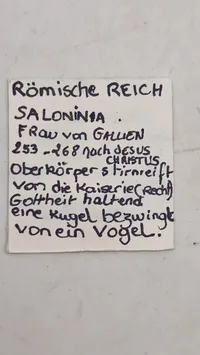 Römische REICH
SALONINIA .
FRau von GALLIEN
253 - 268 nach JESUS
CHRISTUS
Oberkörper stirnreift
von die Kaiserie (Recht)
Gottheit haltend
eine Kugel bezwingt
von ein Vogel.